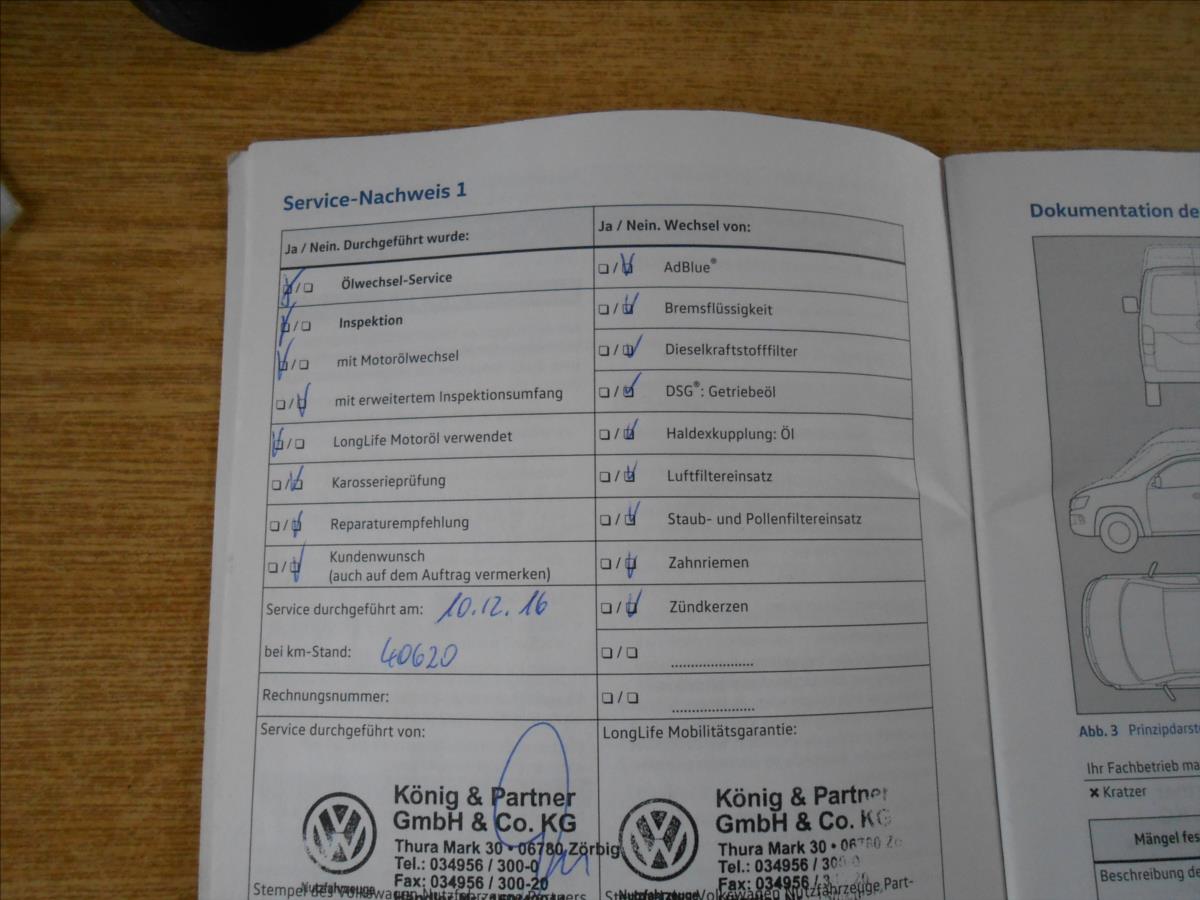 Service-Nachweis 1
Ja / Nein. Durchgeführt wurde:
❏ / ❏ Ölwechsel-Service
❏ / ❏ Inspektion
❏ / ❏ mit Motorölwechsel
❏ / ❏ mit erweitertem Inspektionsumfang
❏ / ❏ LongLife Motoröl verwendet
❏ / ❏ Karosserieprüfung
❏ / ❏ Reparaturempfehlung
❏ / ❏ Kundenwunsch
(auch auf dem Auftrag vermerken)
Service durchgeführt am: 10.12.16
bei km-Stand: 40620
Rechnungsnummer:
Service durchgeführt von:
König & Partner
GmbH & Co. KG
Thura Mark 30 • 06780 Zörbig
Tel.: 034956 / 300-0
Fax: 034956 / 300-20
Nutzfahrzeuge
Stempel des Volkswagen Nutzfahrzeuge
Ja / Nein. Wechsel von:
❏ / ❏ AdBlue®
❏ / ❏ Bremsflüssigkeit
❏ / ❏ Dieselkraftstofffilter
❏ / ❏ DSG®: Getriebeöl
❏ / ❏ Haldexkupplung: Öl
❏ / ❏ Luftfiltereinsatz
❏ / ❏ Staub- und Pollenfiltereinsatz
❏ / ❏ Zahnriemen
❏ / ❏ Zündkerzen
❏ / ❏ ......................
❏ / ❏ ......................
LongLife Mobilitätsgarantie:
König & Partner
GmbH & Co. KG
Thura Mark 30 • 06780
Tel.: 034956 /
Fax: 034956 /
Nutzfahrzeuge
Volkswagen Nutzfahrzeuge Part-
Dokumentation de
Abb. 3 Prinzipdarst
Ihr Fachbetrieb ma
✖ Kratzer
Mängel fes
Beschreibung de